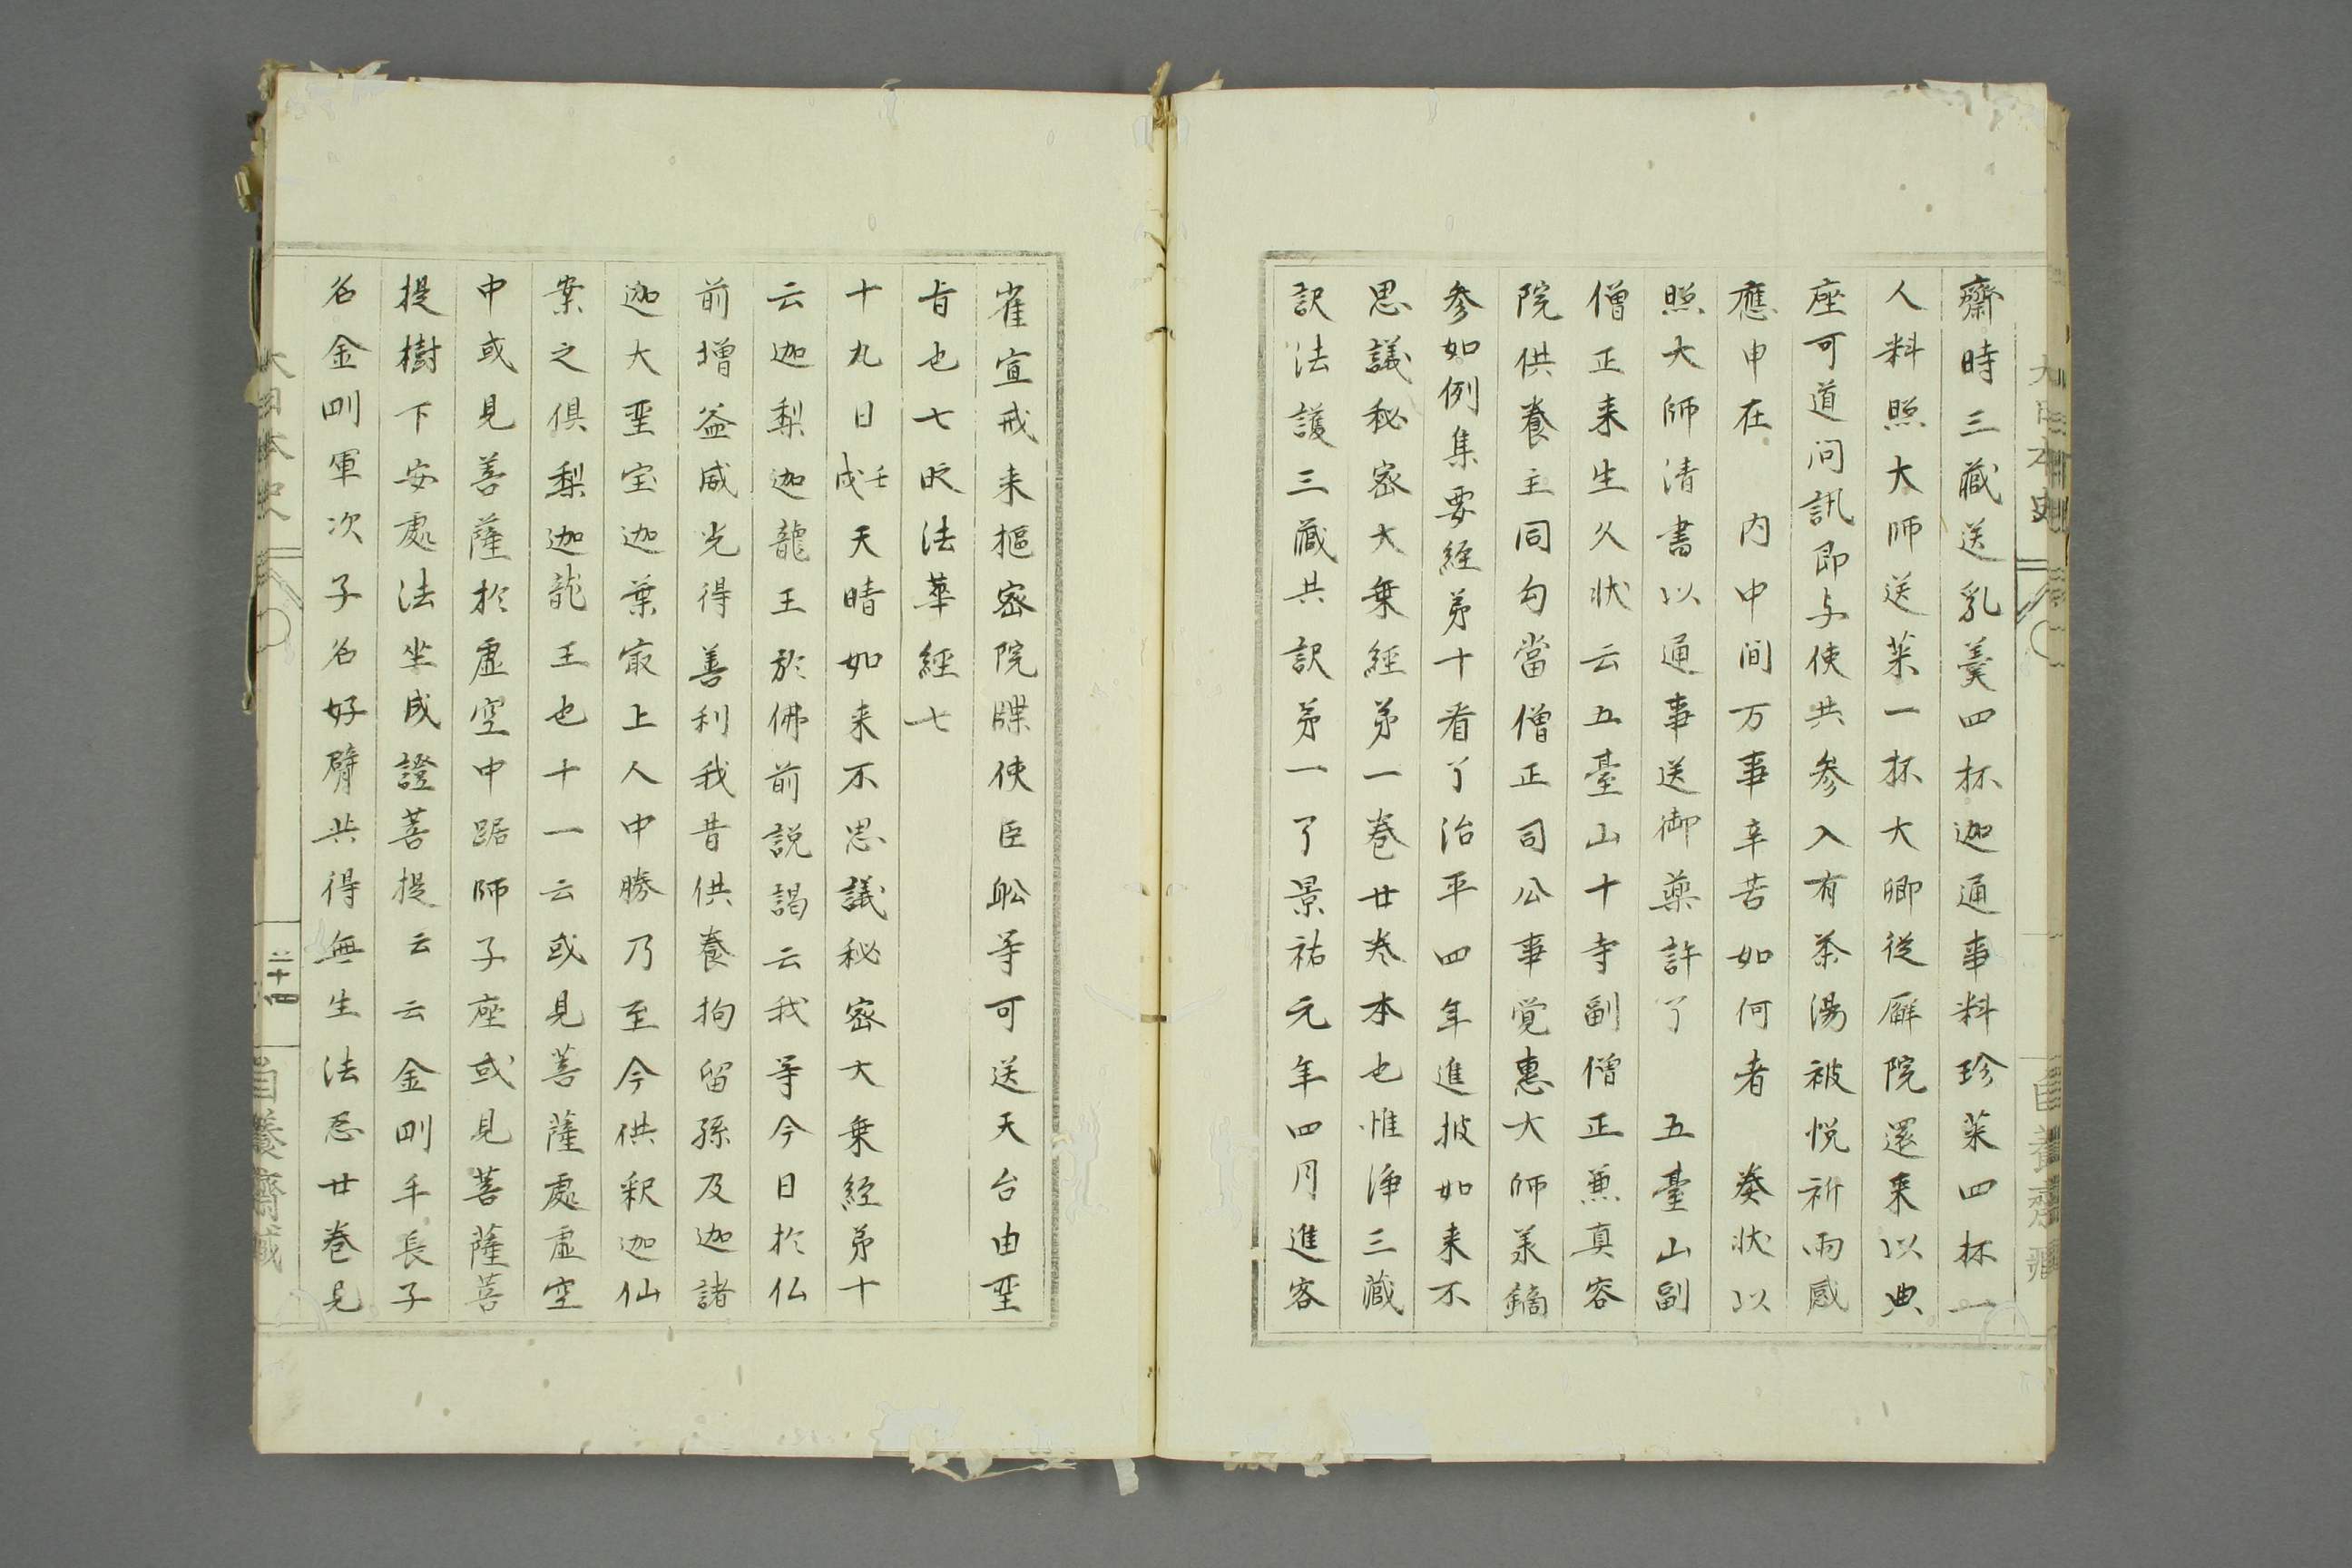 齋時三藏送乳羹四杯迦通事料珍菜四杯一
人料照大師送菜一杯大卿從廨院還来以典
座可道问訊即与使共参入有茶湯被悦祈雨感
應申在　内中间万事辛苦如何者　奏状以
照大師清書以通事送御藥許了　五臺山副
僧正来生久状云五臺山十寺副僧正兼真容
院供養主同勾當僧正司公事覚惠大師羕鏑
参如例集要経苐十看了治平四年進披如来不
思議秘密大乗経苐一巻廿巻本也惟浄三藏
訳法護三藏共訳苐一了景祐元年四月進客
雀宣戒来樞密院牒使臣舩等可送天台由聖
㫖也七时法華經七
十九日壬戌天晴如来不思議秘密大乗経苐十
云迦梨迦龍王於佛前説謁云我等今日於仏
前增益威光得善利我昔供養拘留孫及迦諸
迦大聖宝迦葉㝡上人中勝乃至今供釈迦仙
案之俱梨迦龍王也十一云或見菩薩處虚空
中或見善薩於虚空中踞師子座或見菩薩菩
提樹下安處法坐成證菩提云云金剛手長子
名金剛軍次子名好臂共得無生法忍廿巻見
大日本史
二十四
自養齋藏